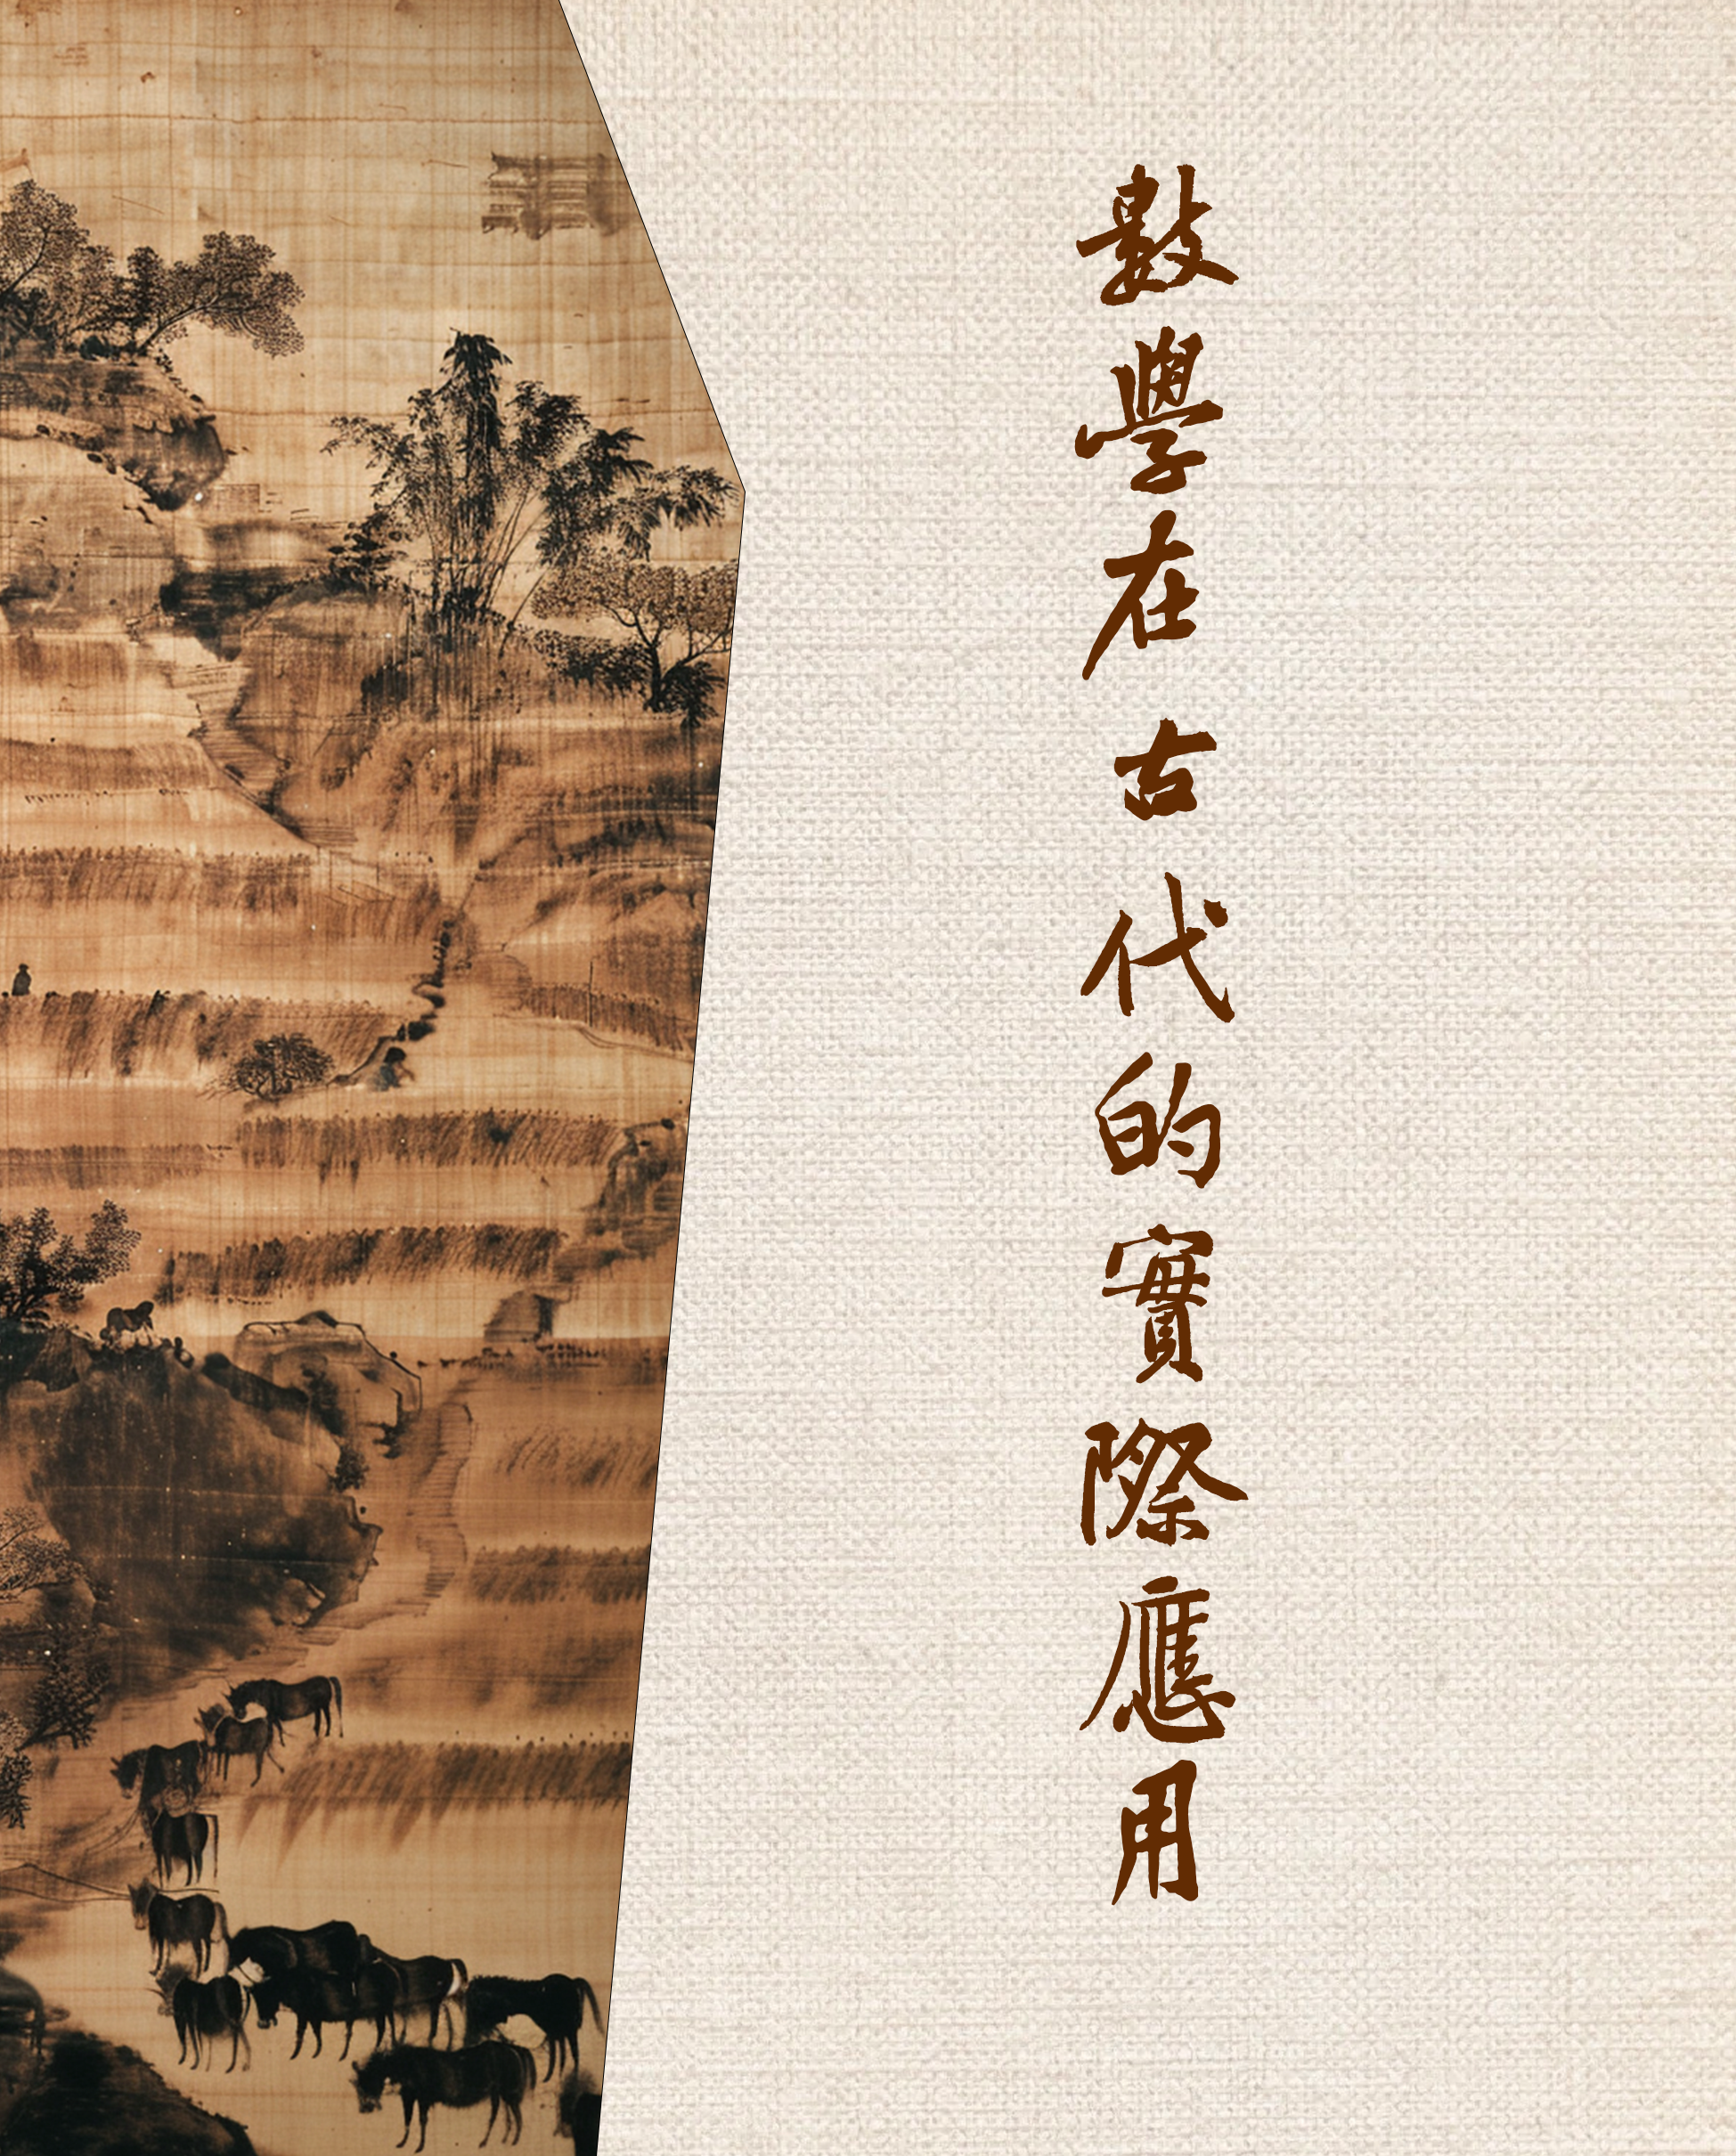 數學在古代的實際應用